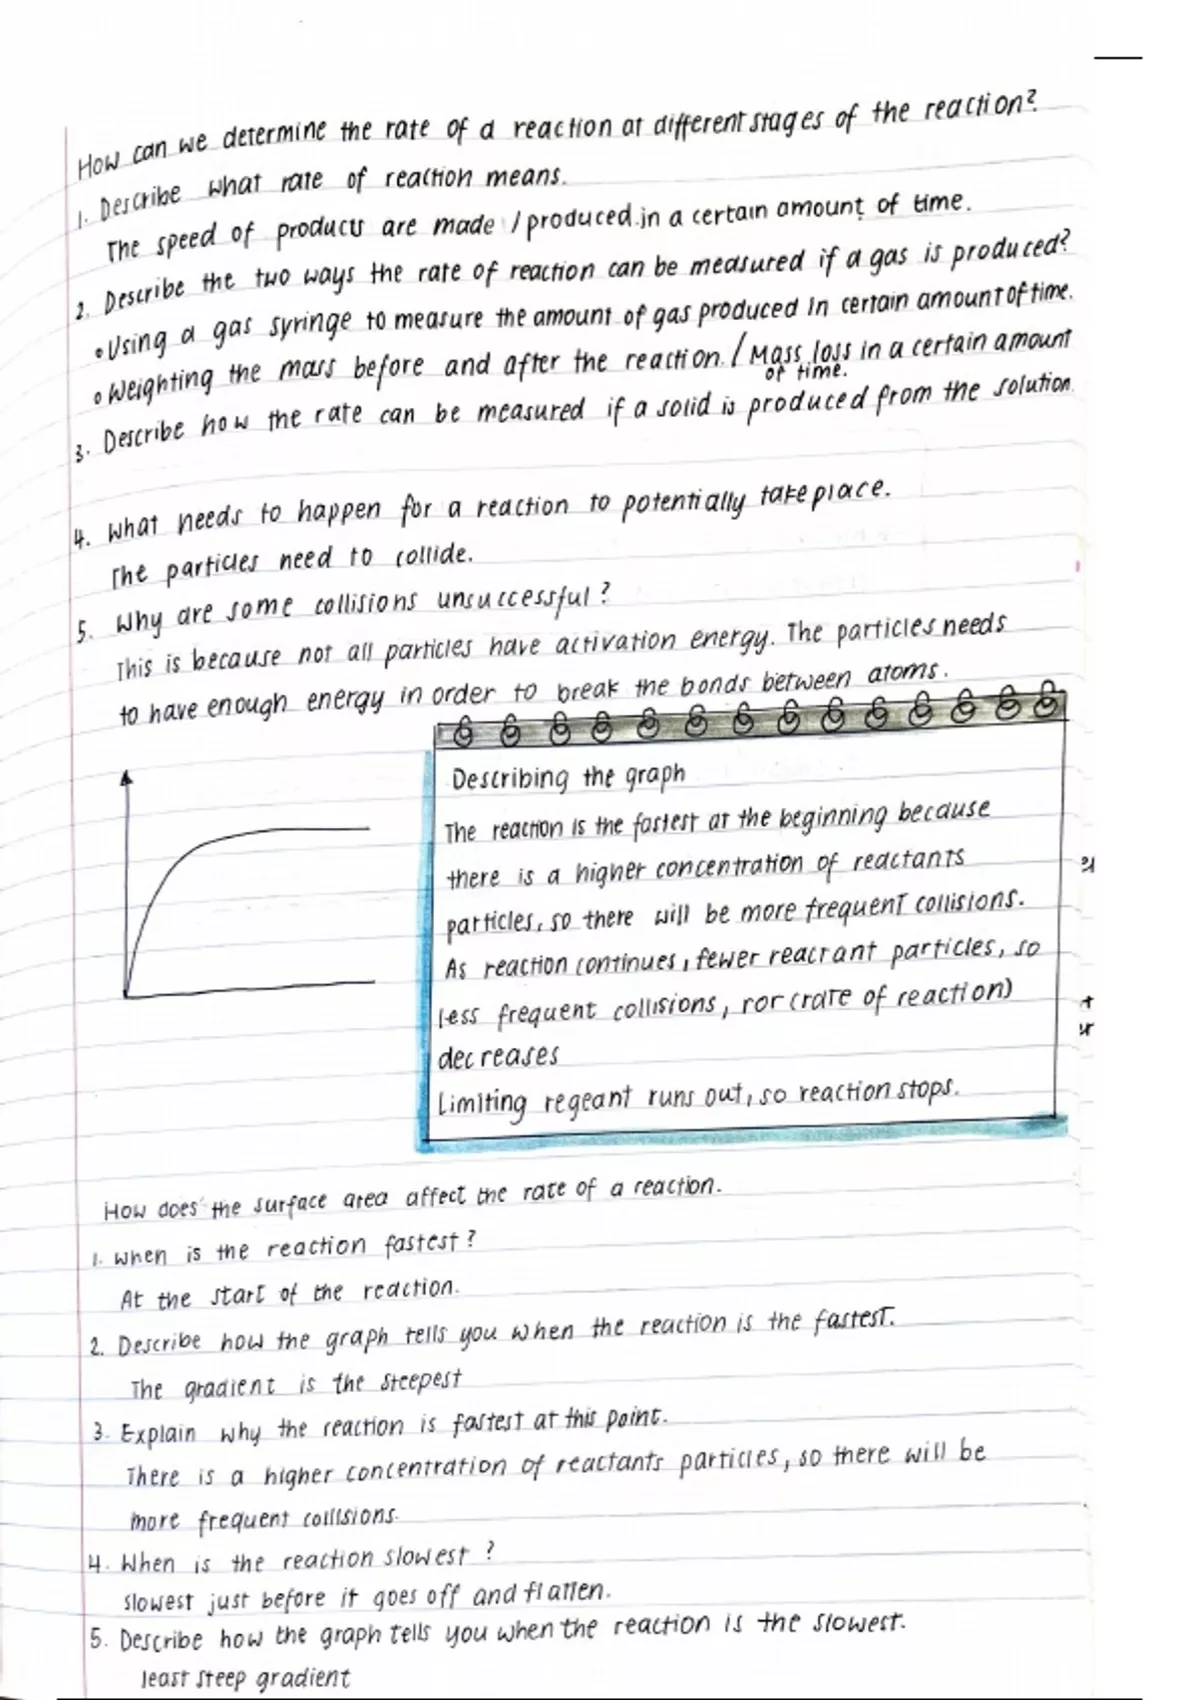 How can we determine the rate of a reaction at different stages of the reaction?
1. Describe what rate of reaction means.
The speed of products are made / produced in a certain amount of time.
2. Describe the two ways the rate of reaction can be measured if a gas is produced?
• Using a gas syringe to measure the amount of gas produced in certain amount of time.
• Weighting the mass before and after the reaction. / Mass loss in a certain amount
of time.
3. Describe how the rate can be measured if a solid is produced from the solution.
4. What needs to happen for a reaction to potentially take place.
The particles need to collide.
5. Why are some collisions unsuccessful?
This is because not all particles have activation energy. The particles needs
to have enough energy in order to break the bonds between atoms.
Describing the graph
The reaction is the fastest at the beginning because
there is a higher concentration of reactants
particles, so there will be more frequent collisions.
As reaction continues, fewer reactant particles, so
less frequent collisions, ror (rate of reaction)
decreases
Limiting regeant runs out, so reaction stops.
How does the surface area affect the rate of a reaction.
1. When is the reaction fastest?
At the start of the reaction.
2. Describe how the graph tells you when the reaction is the fastest.
The gradient is the steepest
3. Explain why the reaction is fastest at this point.
There is a higher concentration of reactants particles, so there will be
more frequent collisions.
4. When is the reaction slowest?
slowest just before it goes off and flatten.
5. Describe how the graph tells you when the reaction is the slowest.
least steep gradient